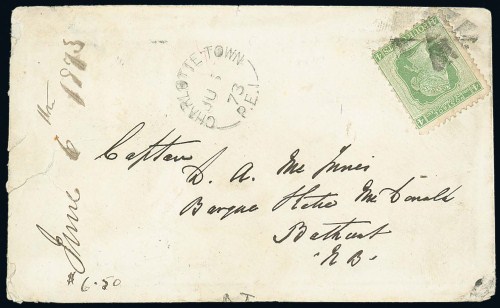 June 6th 1873
CHARLOTTE-TOWN
JU
73
P.E.I.
Captan
D. A. McInnis
Barque Katie McDonald
Bathurst
N.B.
$6.50